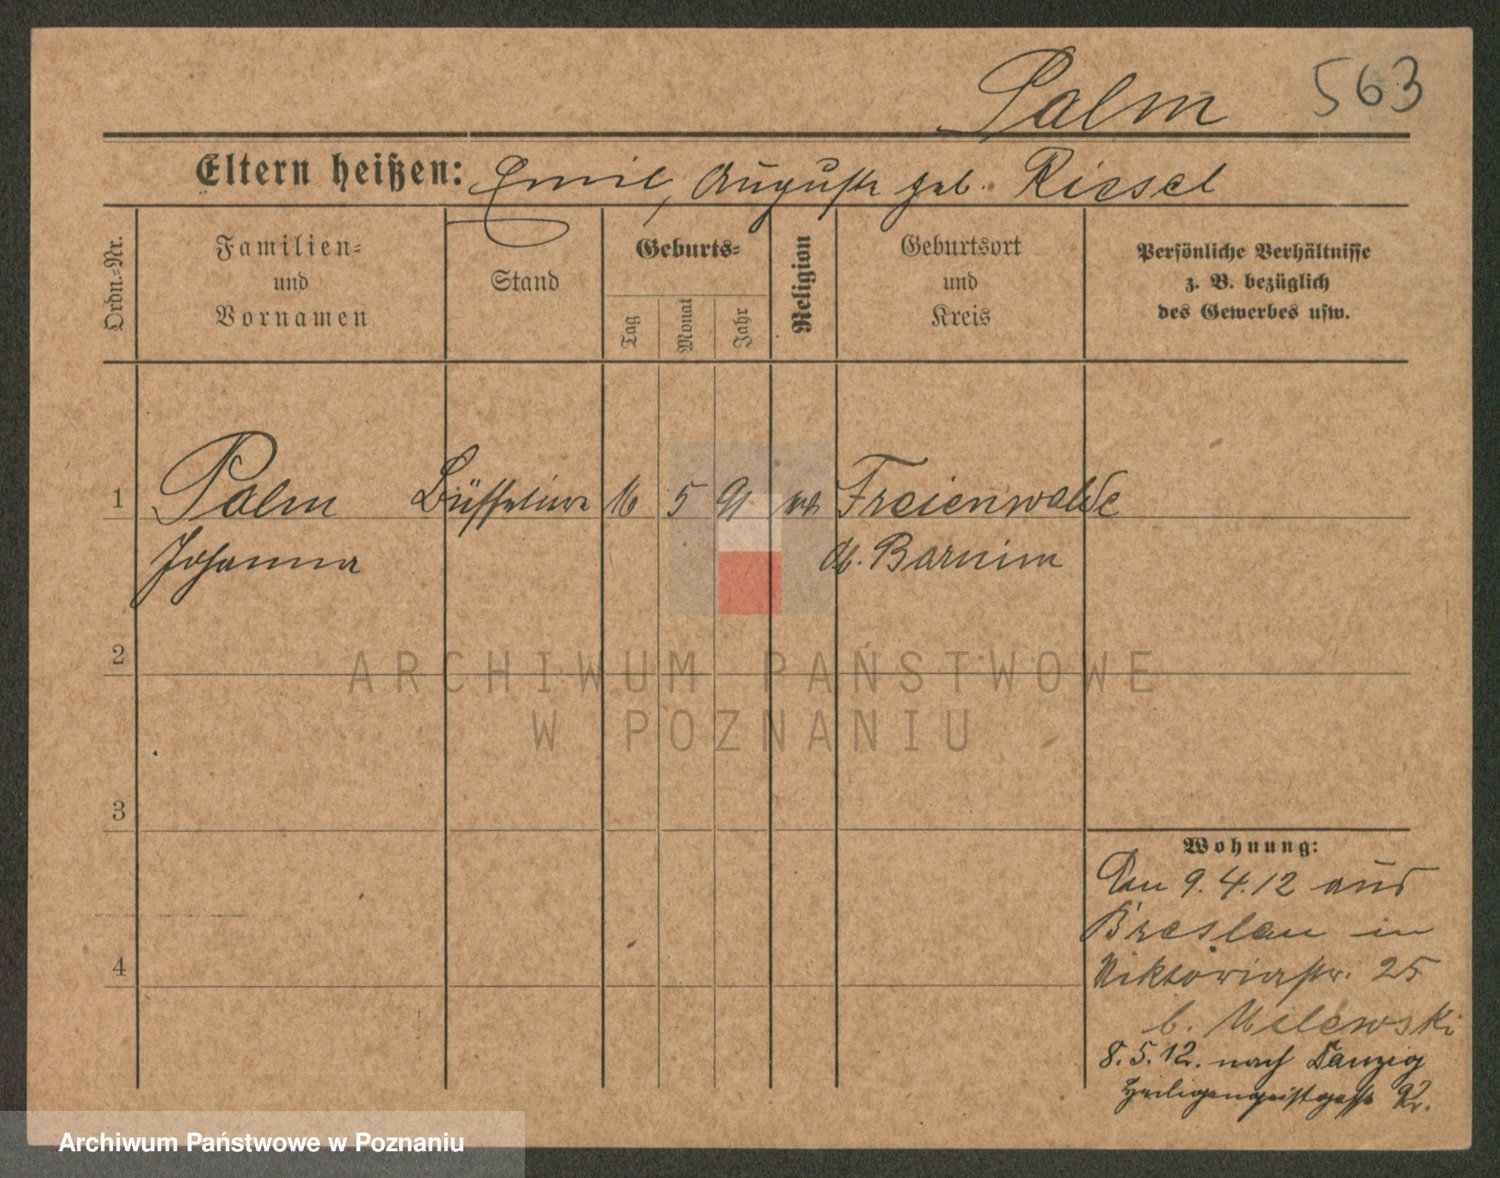 Palm 563
Eltern heißen: Emil, Auguste geb. Riesel
Ordn.-Nr.
Familien-
und
Vornamen
Stand
Geburts-
Tag
Monat
Jahr
Religion
Geburtsort
und
Kreis
Persönliche Verhältnisse
z. B. bezüglich
des Gewerbes usw.
1 Palm 16 5 91 Freienwalde
Johanna Barnim
2
ARCHIWUM PAŃSTWOWE
W POZNANIU
3
Wohnung:
Den 9.4.12 aus
Breslau in
4
Viktoriastr. 25
b. Milewski
8.5.12. nach Danzig
Heiligengeistgasse
Archiwum Państwowe w Poznaniu